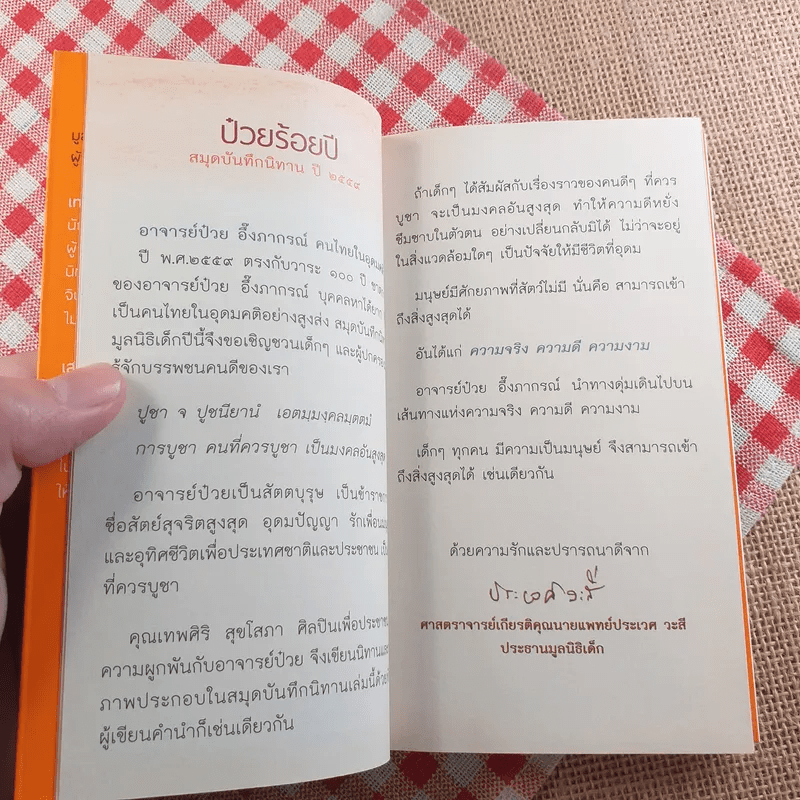 ป๋วยร้อยปี
สมุดบันทึกนิทาน ปี ๒๕๕๙
อาจารย์ป๋วย อึ๊งภากรณ์ คนไทยในอุดมคติ
ปี พ.ศ.๒๕๕๙ ตรงกับวาระ ๑๐๐ ปี
ของอาจารย์ป๋วย อึ๊งภากรณ์ บุคคลหาได้ยาก
เป็นคนไทยในอุดมคติอย่างสูงส่ง สมุดบันทึกนิทาน
มูลนิธิเด็กปีนี้จึงขอเชิญชวนเด็กๆ และผู้ปกครอง
รู้จักบรรพชนคนดีของเรา
ปูชา จ ปูชนียานํ เอตมฺมงฺคลมุตฺตมํ
การบูชา คนที่ควรบูชา เป็นมงคลอันสูงสุด
อาจารย์ป๋วยเป็นสัตตบุรุษ เป็นข้าราชการ
ซื่อสัตย์สุจริตสูงสุด อุดมปัญญา รักเพื่อน
และอุทิศชีวิตเพื่อประเทศชาติและประชาชน
ที่ควรบูชา
คุณเทพศิริ สุขโสภา ศิลปินเพื่อประชาชน
ความผูกพันกับอาจารย์ป๋วย จึงเขียนนิทานและ
ภาพประกอบในสมุดบันทึกนิทานเล่มนี้ด้วย
ผู้เขียนคำนำก็เช่นเดียวกัน
ถ้าเด็กๆ ได้สัมผัสกับเรื่องราวของคนดีๆ ที่ควร
บูชา จะเป็นมงคลอันสูงสุด ทำให้ความดีหยั่ง
ซึมซาบในตัวตน อย่างเปลี่ยนกลับมิได้ ไม่ว่าจะอยู่
ในสิ่งแวดล้อมใดๆ เป็นปัจจัยให้มีชีวิตที่อุดม
มนุษย์มีศักยภาพที่สัตว์ไม่มี นั่นคือ สามารถเข้า
ถึงสิ่งสูงสุดได้
อันได้แก่ ความจริง ความดี ความงาม
อาจารย์ป๋วย อึ๊งภากรณ์ นำทางดุ่มเดินไปบน
เส้นทางแห่งความจริง ความดี ความงาม
เด็กๆ ทุกคน มีความเป็นมนุษย์ จึงสามารถเข้า
ถึงสิ่งสูงสุดได้ เช่นเดียวกัน
ด้วยความรักและปรารถนาดีจาก
ประเวศ วะสี
ศาสตราจารย์เกียรติคุณนายแพทย์ประเวศ วะสี
ประธานมูลนิธิเด็ก